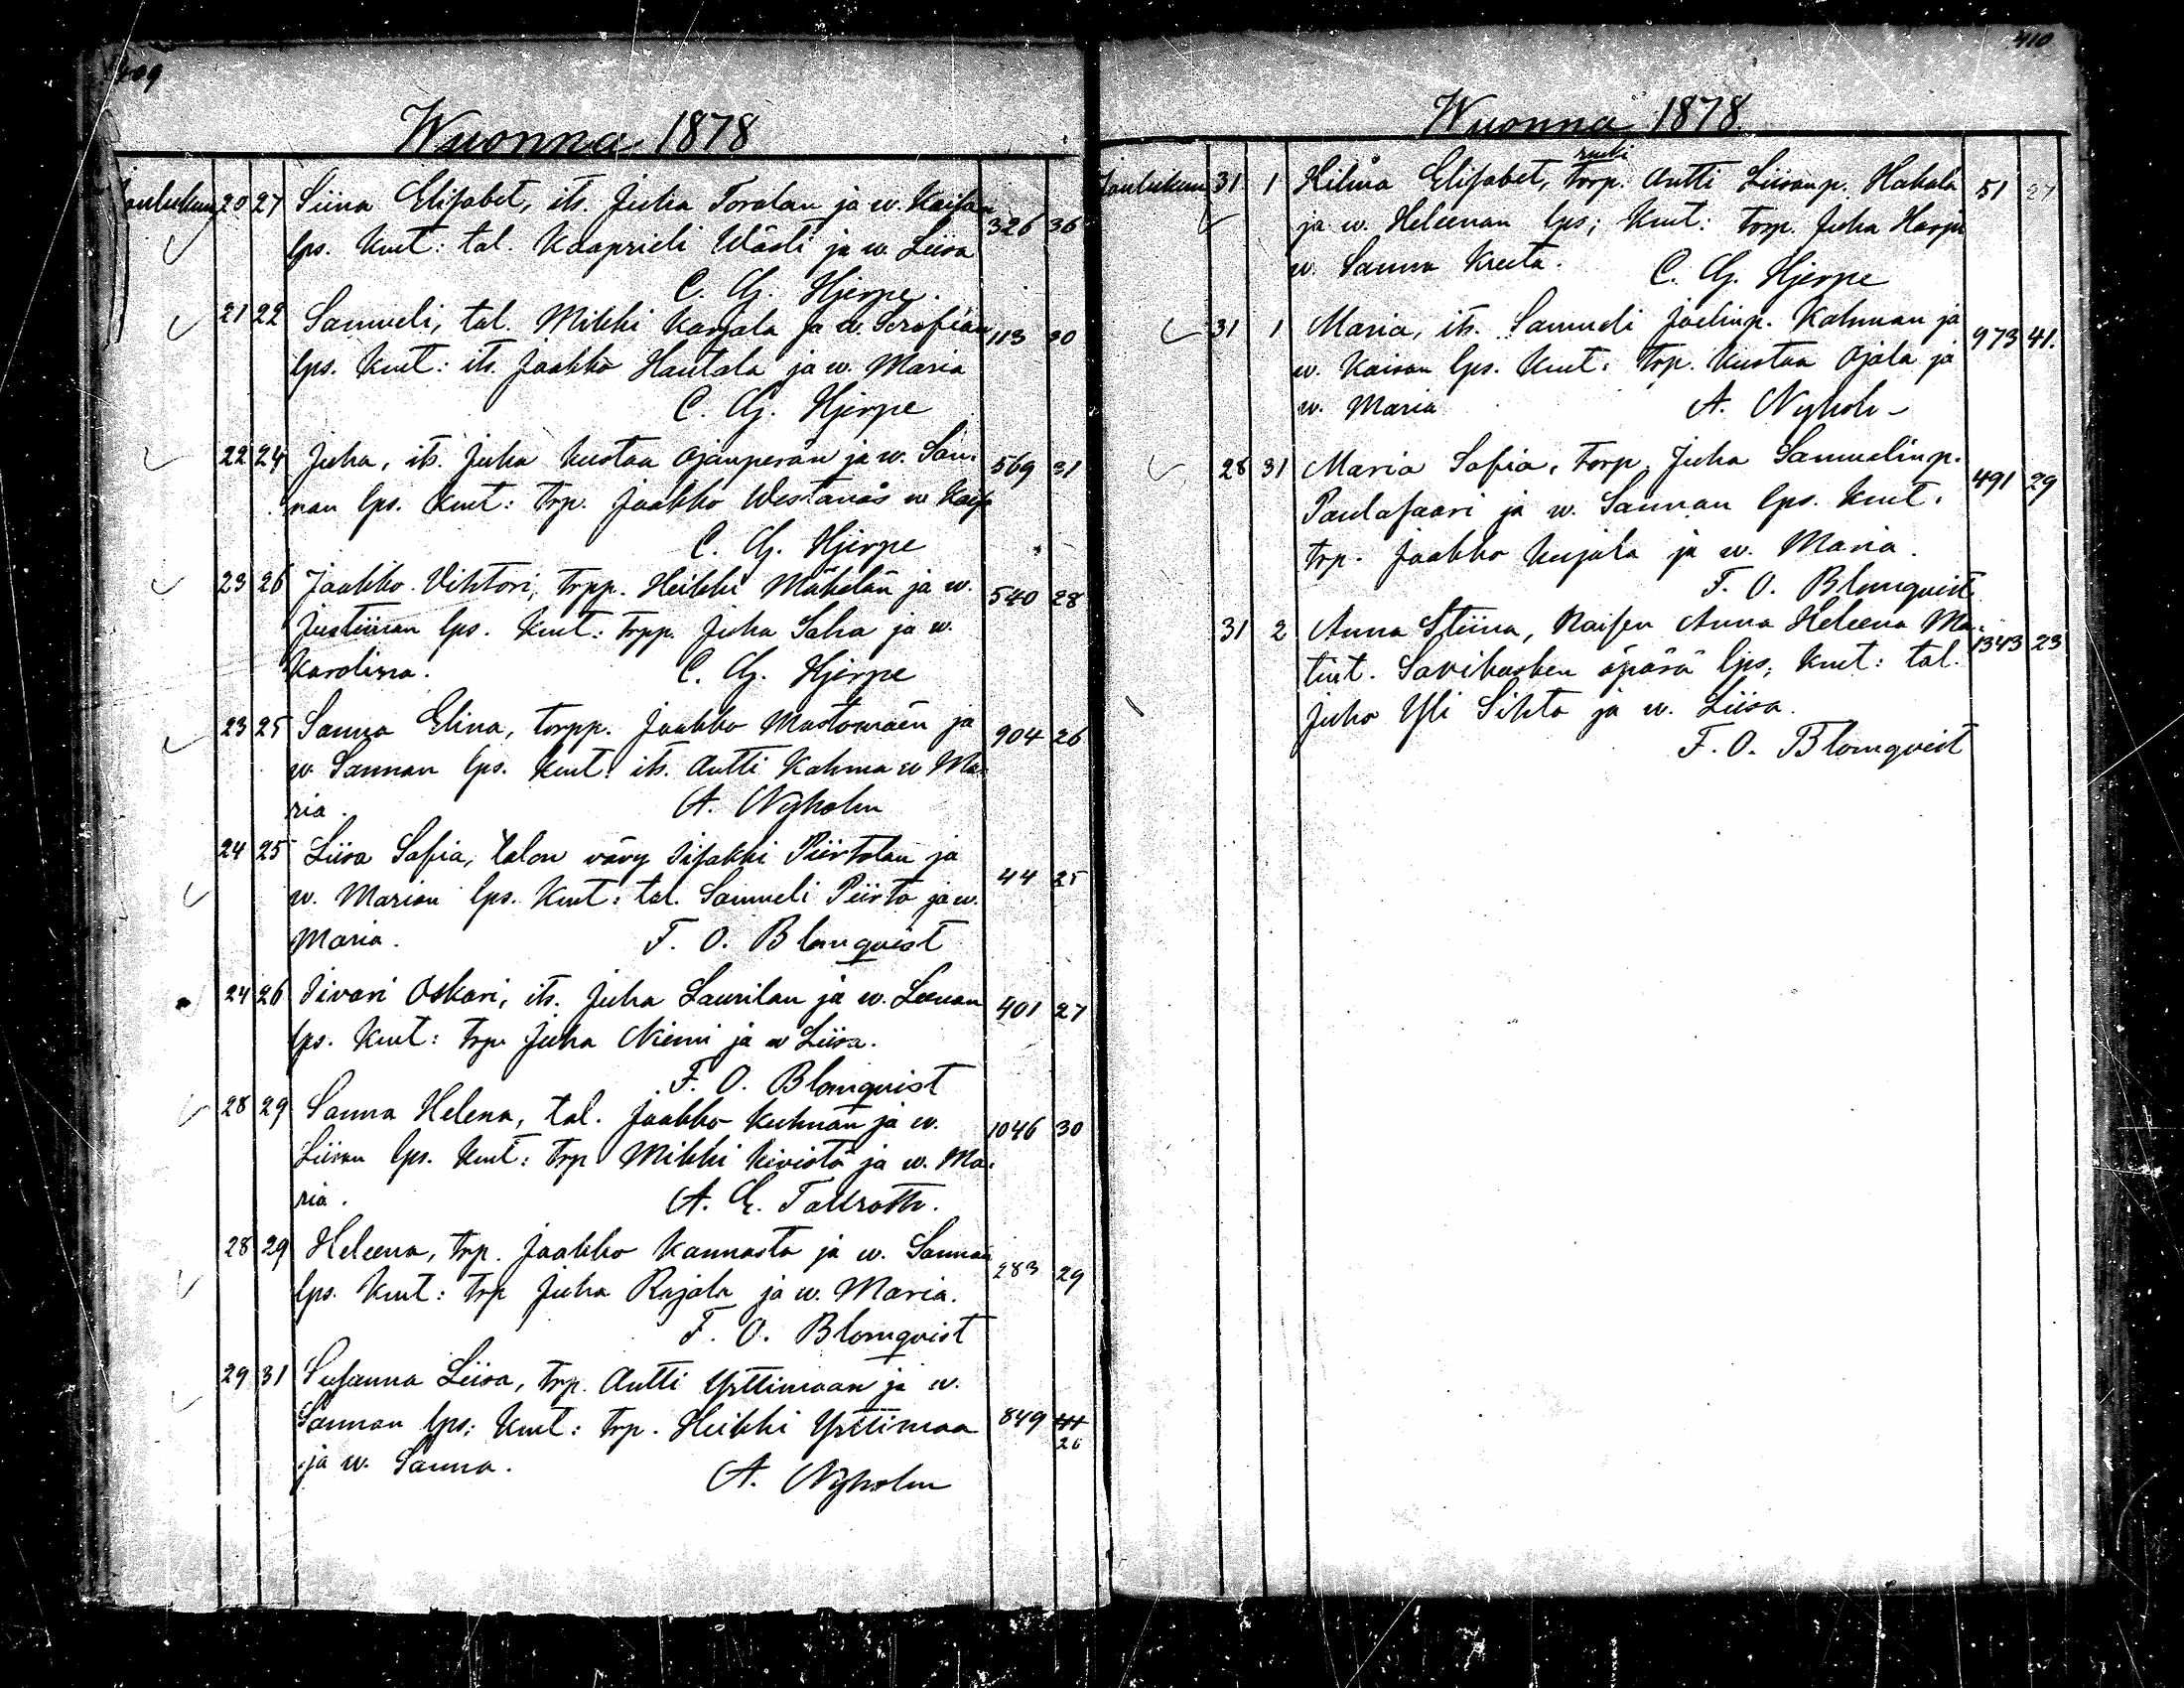 409
Wuonna 1878
Joulukuu 20 27 Siina Elisabet, its. Juha Toralan ja w. Kaisan 326 36
lps. Kmt: tal. Kaaprieli Wästi ja w. Liisa
C. G. Hjerpe.
21 22 Samueli, tal. Mikki Karjala ja w. Serafian 113 30
lps. Kmt: its. Jaakko Hautala ja w. Maria
C. G. Hjerpe
22 24 Juha, its. Juha Kustaa Ojanperän ja w. San- 569 31
nan lps. Kmt: trp. Jaakko w Kaisa
C. G. Hjerpe
23 26 Jaakko Vihtori, trpp. Heikki Mäkelän ja w. 540 28
Justiinan lps. Kmt: trpp. Juha Salia ja w.
Karolina. C. G. Hjerpe
23 25 Sanna Elina, torpp. Jaakko Mustomäen ja 904 26
w. Sannan lps. Kmt: its. Antti Kahma w Ma-
ria. A. Nyholm
24 25 Liisa Sofia, talon vävy Iisakki Piirtolan ja 44 25
w. Marian lps. Kmt: tal. Samueli Piirto ja w.
Maria. F. O. Blomqvist
24 26 Iivari Oskari, its. Juha Laurilan ja w. Leenan 401 27
lps. Kmt: trp. Juha Niemi ja w Liisa.
F. O. Blomqvist
28 29 Sanna Helena, tal. Jaakko Kuhnan ja w. 1046 30
Liisan lps. Kmt: trp Mikki Kivistö ja w. Ma-
ria. A. E. Tallroth.
28 29 Heleena, trp. Jaakko Kannasto ja w. Sannan 283 29
lps. Kmt: trp Juha Rajala ja w. Maria.
F. O. Blomqvist
29 31 Susanna Liisa, trp. Antti Yrttimaan ja w.
Sannan lps; Kmt: trp. Heikki Yrttimaa 849
26
ja w. Sanna. A. Nyholm
410
Wuonna 1878.
Joulukuu 31 1 Hilma Elisabet, torp. Antti Liisanp. Hakala 51 27
ja w. Heleenan lps; Kmt: torp. Juha Harju
w. Sanna Kreeta. C. G. Hjerpe
31 1 Maria, its. Samueli Joelinp. Kahman ja 973 41.
w. Kaisan lps. Kmt: trp. Kustaa Ojala ja
w. Maria A. Nyholm
28 31 Maria Sofia, torp. Juha Samuelinp. 491 29
Paulasaari ja w. Sannan lps. Kmt:
trp. Jaakko Kujala ja w. Maria.
F. O. Blomqvist
31 2 Anna Stiina, Naisen Anna Heleena Ma- 1343 23
tint. Savikosken äpärä lps; Kmt: tal.
Juho Yli Sihto ja w. Liisa.
F. O. Blomqvist